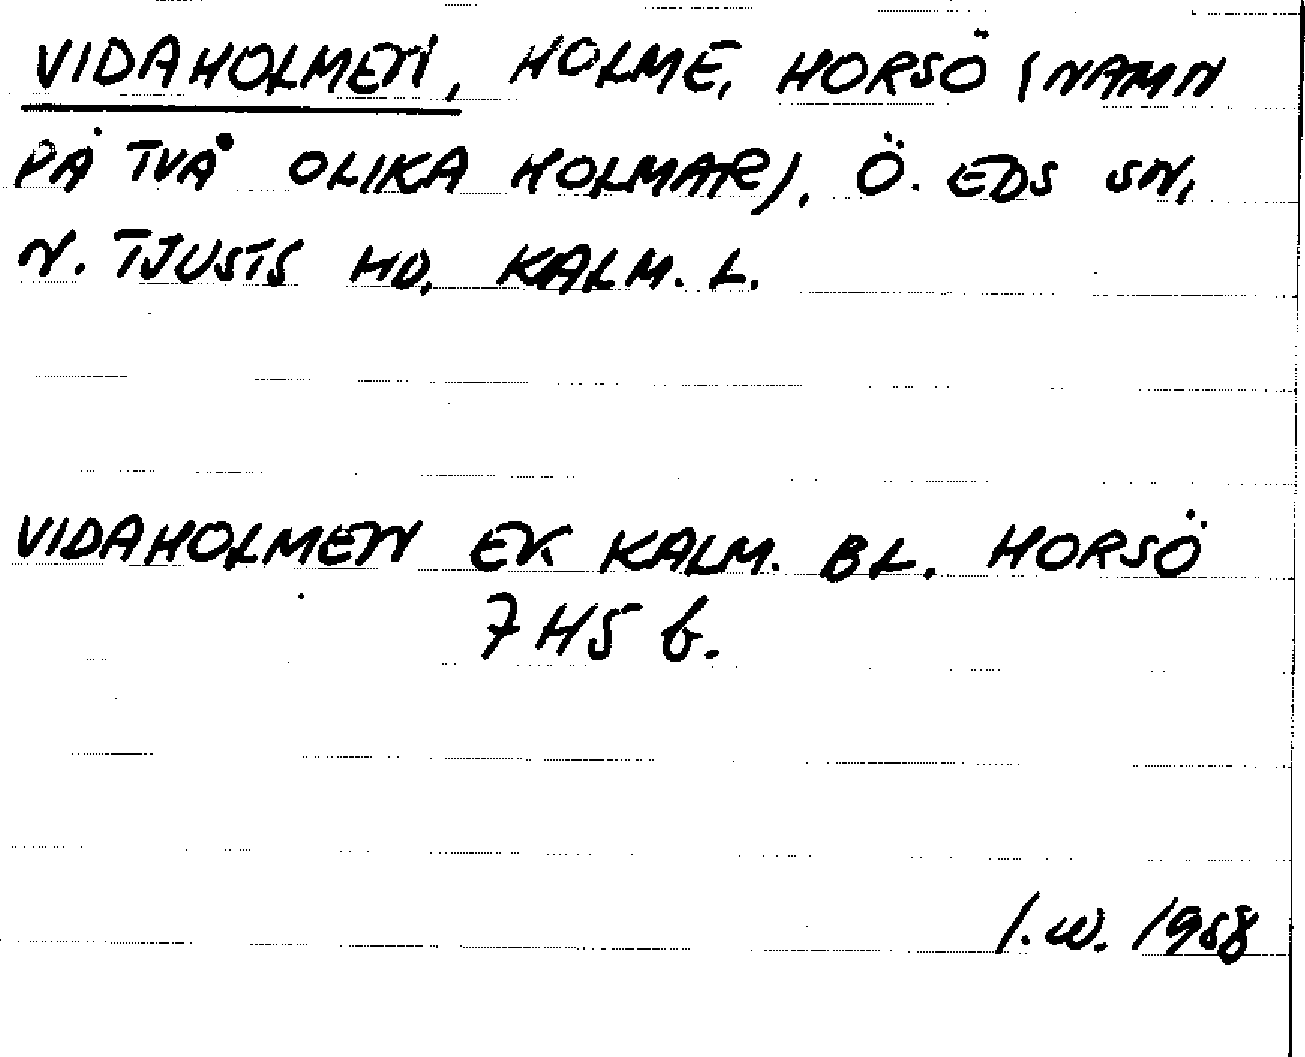 VIDAHOLMEN, HOLME, HORSÖ (NAMN
PÅ TVÅ OLIKA HOLMAR), Ö. EDS SN,
N. TJUSTS HD, KALM. L.
VIDAHOLMEN EK KALM. BL. HORSÖ
7 H5 b.
I.W. 1958